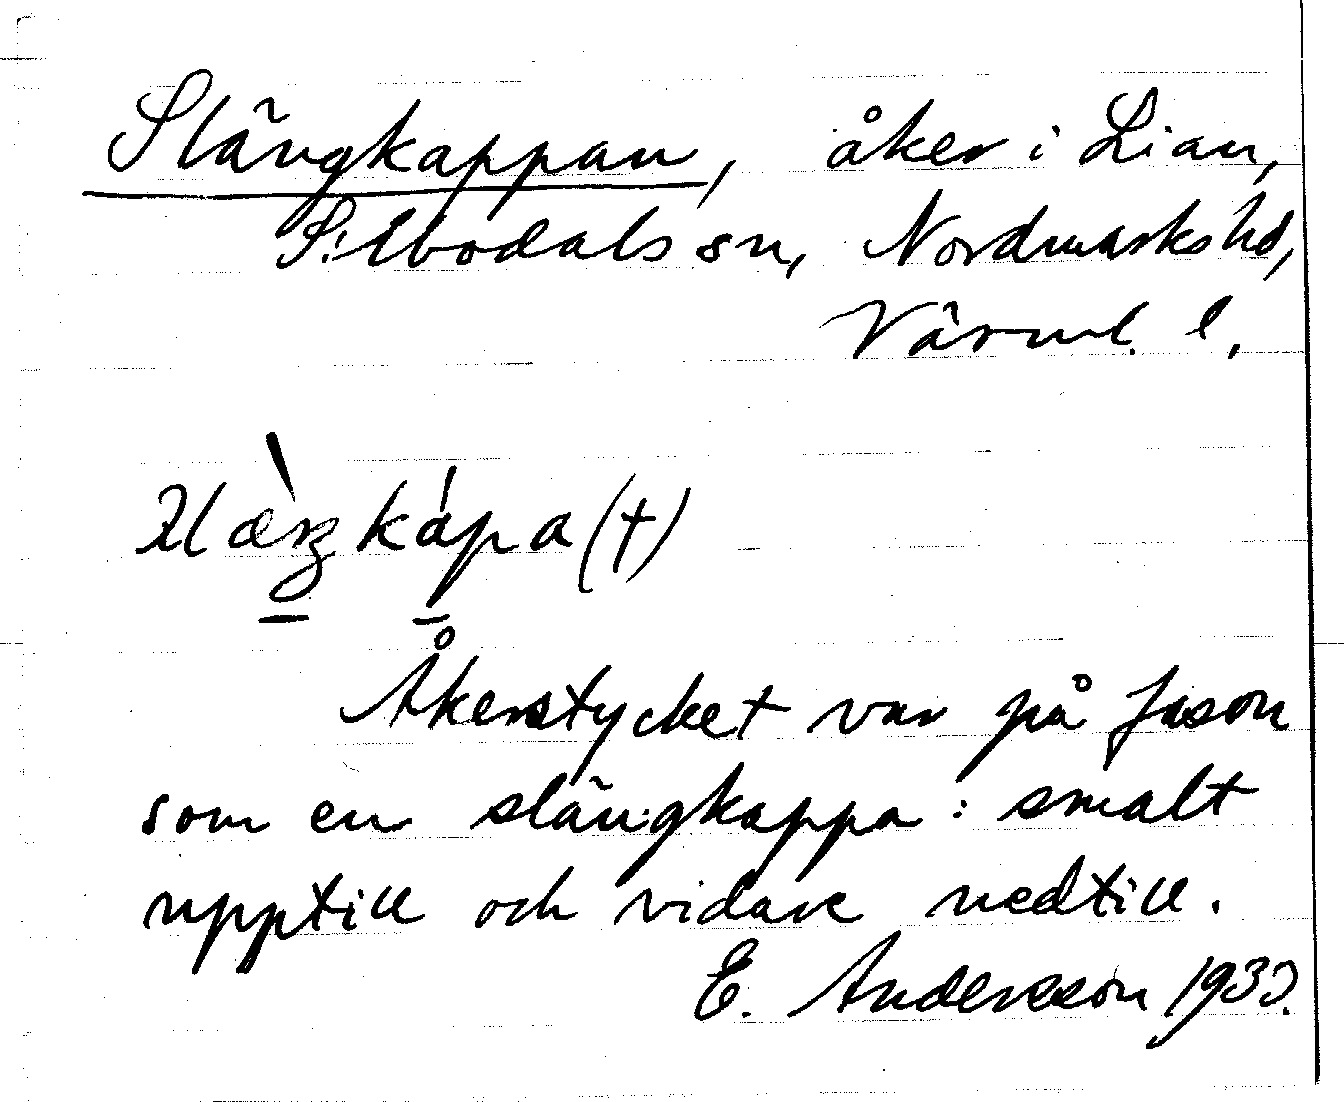 Slängkappan, åker i Lian,
Silbodals sn, Nordmarks hd,
Värml. l.
kápa (†)
Åkerstycket var på fason
som en slängkappa: smalt
upptill och vidare nedtill.
E. Andersson 193